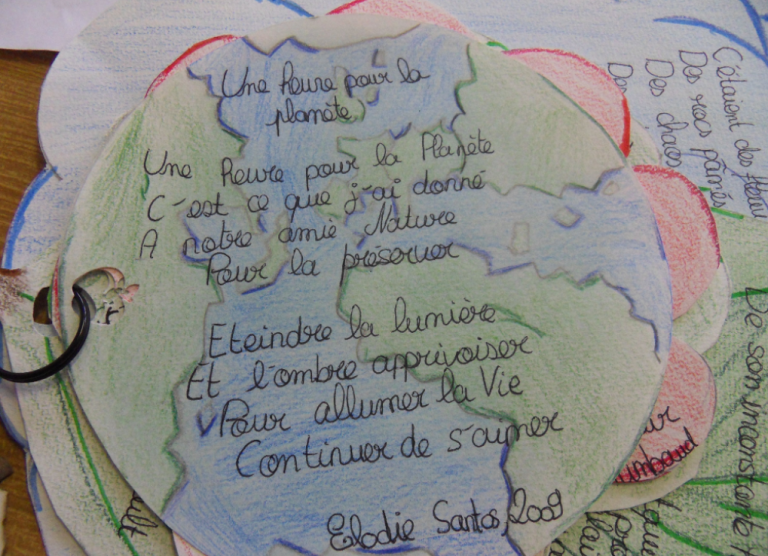 Une heure pour la
planète
Une heure pour la Planète
C'est ce que j'ai donné
A notre amie Nature
Pour la préserver
Eteindre la lumière
Et l'ombre apprivoiser
Pour allumer la Vie
Continuer de s'aimer
Elodie Santos, 2009
C'étaient des
Des
Des chaos
De son inconstante